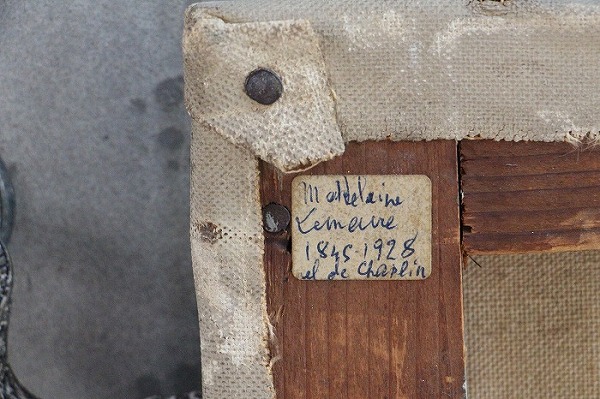 Maddelaine
Lemaire
1845-1928
el de Chaplin